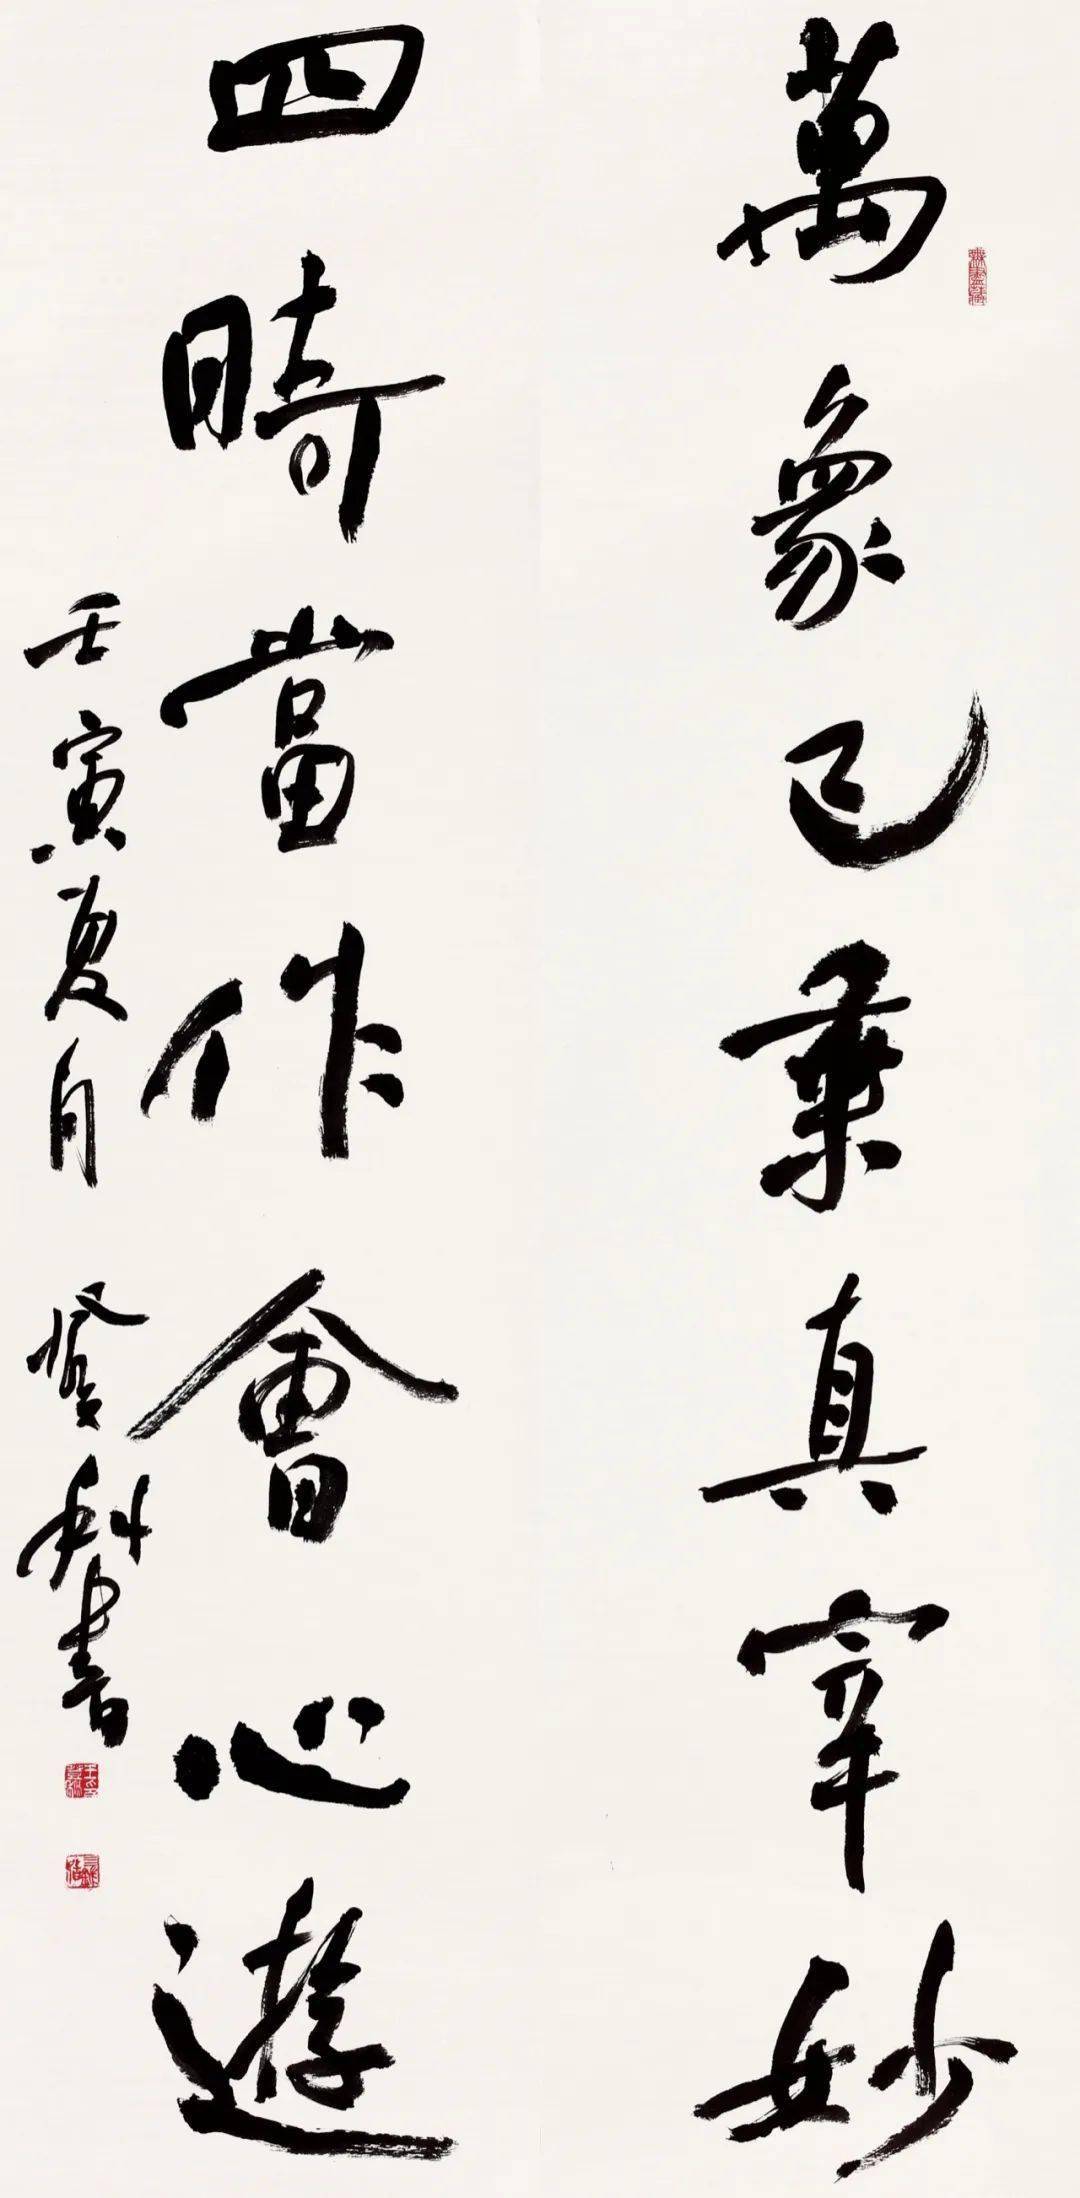 萬象已乘真宰妙
四時當作會心遊
壬寅夏月 登科書